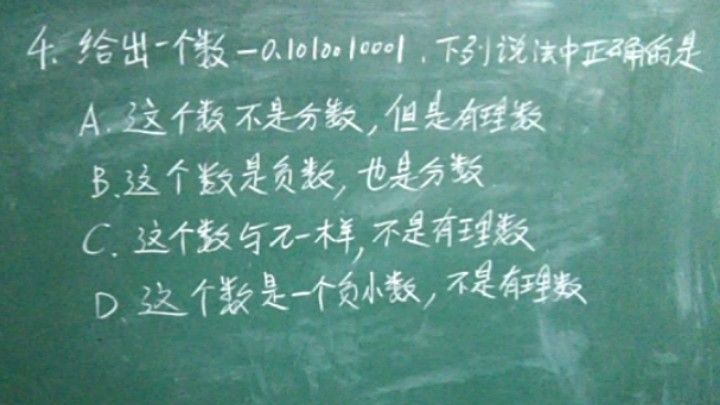 4. 给出一个数-0.1010010001，下列说法中正确的是
A. 这个数不是分数，但是有理数
B. 这个数是负数，也是分数
C. 这个数与π一样，不是有理数
D. 这个数是一个负小数，不是有理数